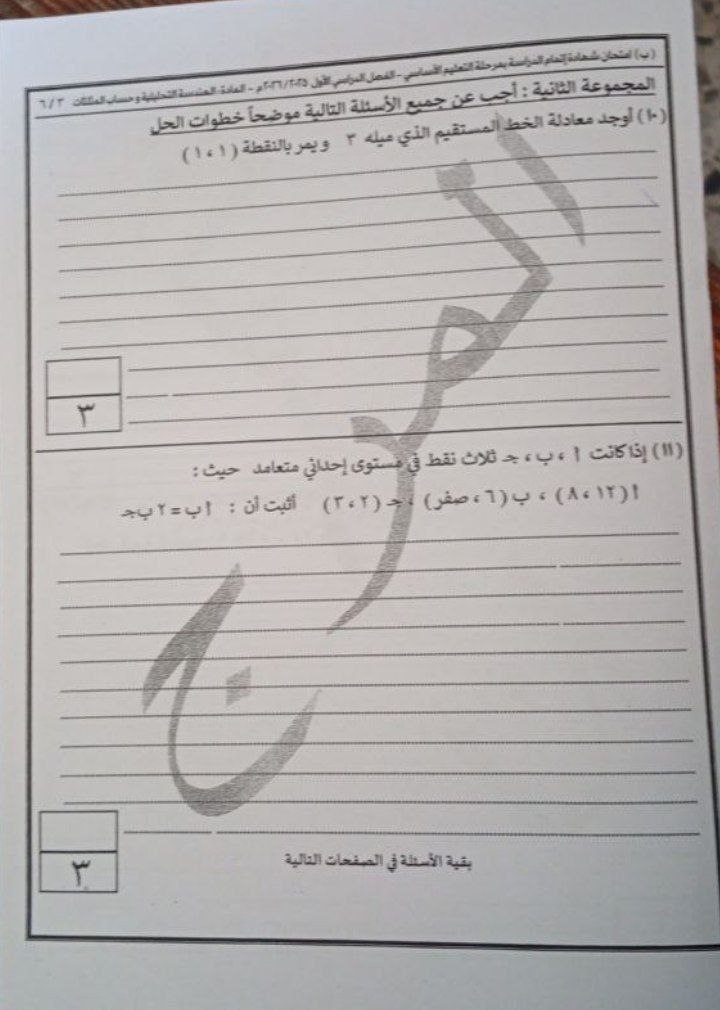 (ب) امتحان شهادة إتمام الدراسة بمرحلة التعليم الأساسي - الفصل الدراسي الأول ٢٠٢٦/٢٠٢٥م - المادة: الهندسة التحليلية وحساب المثلثات ٦/٣
المجموعة الثانية : أجب عن جميع الأسئلة التالية موضحاً خطوات الحل
(١٠) أوجد معادلة الخط المستقيم الذي ميله ٣ ويمر بالنقطة (١،١)
٣
(١١) إذا كانت أ ، ب ، جـ ثلاث نقط في مستوى إحداثي متعامد حيث :
أ (٨،١٢) ، ب (٦ ، صفر) ، جـ (٣،٢) أثبت أن : أ ب = ٢ ب جـ
٣
بقية الأسئلة في الصفحات التالية